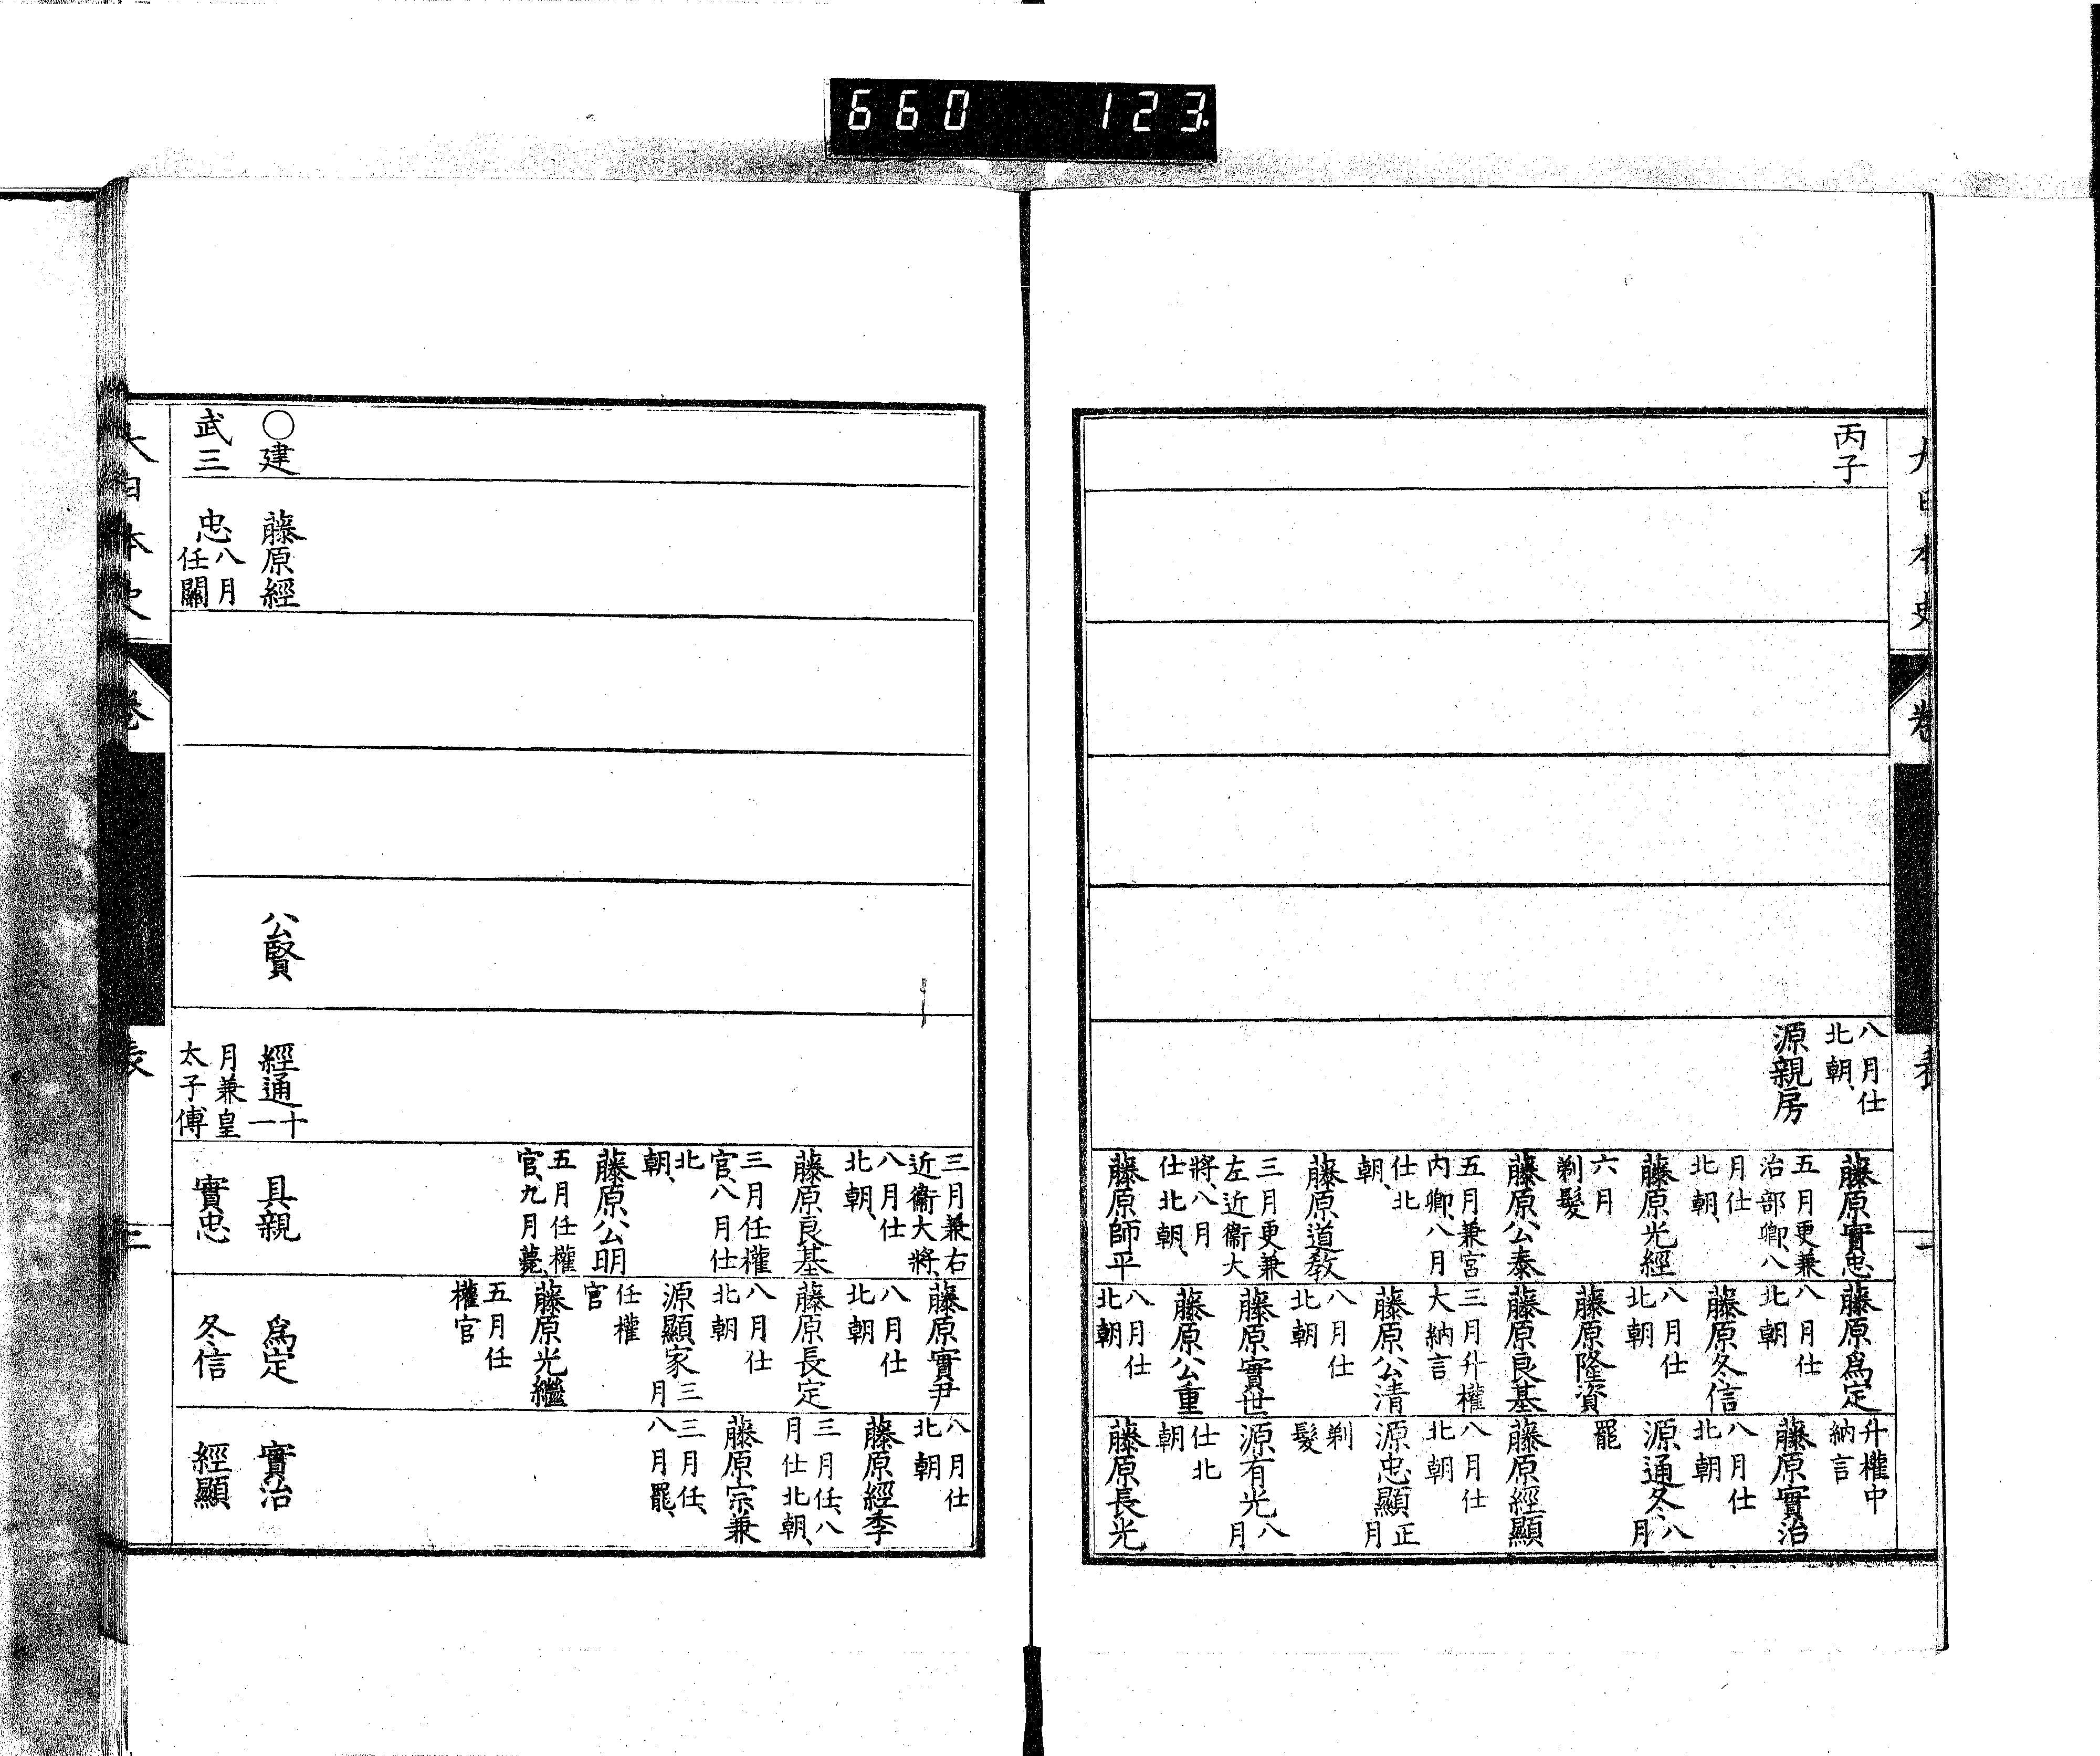 660 123.
大日本史
卷
表
一
丙子
八月仕
北朝、
源親房
藤原實忠
五月更兼
治部卿、八
月仕
北朝、
藤原光經
六月
剃髮
藤原公泰
五月兼宮
内卿、八月
仕北
朝、
藤原道敎
三月更兼
左近衞大
將、八月
仕北朝、
藤原師平
藤原爲定
八月仕
北朝
藤原冬信
八月仕
北朝
藤原隆資
藤原良基
三月升權
大納言
藤原公清
八月仕
北朝
藤原實世
藤原公重
八月仕
北朝
升權中
納言
藤原實治
八月仕
北朝
源通冬八
月
罷
藤原經顯
八月仕
北朝
源忠顯正
月
剃
髮
源有光八
月
仕北
朝
藤原長光
三月兼右
近衞大將、
八月仕
北朝、
藤原良基
三月任權
官、八月仕
北
朝、
藤原公明
五月任權
官、九月薨、
藤原實尹
八月仕
北朝
藤原長定
八月仕
北朝
源顯家三
月
任權
官
藤原光繼
五月任
權官
八月仕
北朝
藤原經季
三月任、八
月仕北朝、
藤原宗兼
三月任、
八月罷、
〇建
武三
藤原經
忠八月
任關
公賢
經通十一
月兼皇
太子傅
具親
實忠
爲定
冬信
實治
經顯
大日本史
卷
表
三